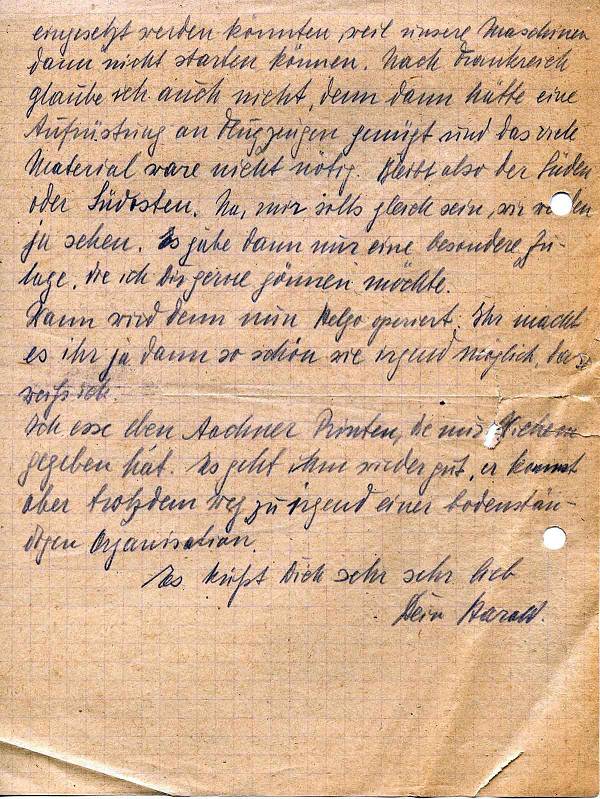 eingesetzt werden könnten, weil unsere Maschinen
dann nicht starten können. Nach Frankreich
glaube ich auch nicht, denn dann hätte eine
Aufrüstung an Flugzeugen genügt und das viele
Material wäre nicht nötig. Bleibt also der Süden
oder Südosten. Na, mir solls gleich sein, wir werden
ja sehen. Es gäbe dann nur eine besondere Zu-
lage, die ich Dir gerne gönnen möchte.
Dann wird denn nun Helga operiert. Ihr macht
es ihr ja dann so schön wie irgend möglich, das
weiß ich.
Ich esse eben Aachner Printen, die mir
gegeben hat. Es geht ihm wieder gut, er kommt
aber trotzdem weg zu irgend einer bodenstän-
digen Organisation.
Es küßt Dich sehr sehr lieb
Dein Harald.